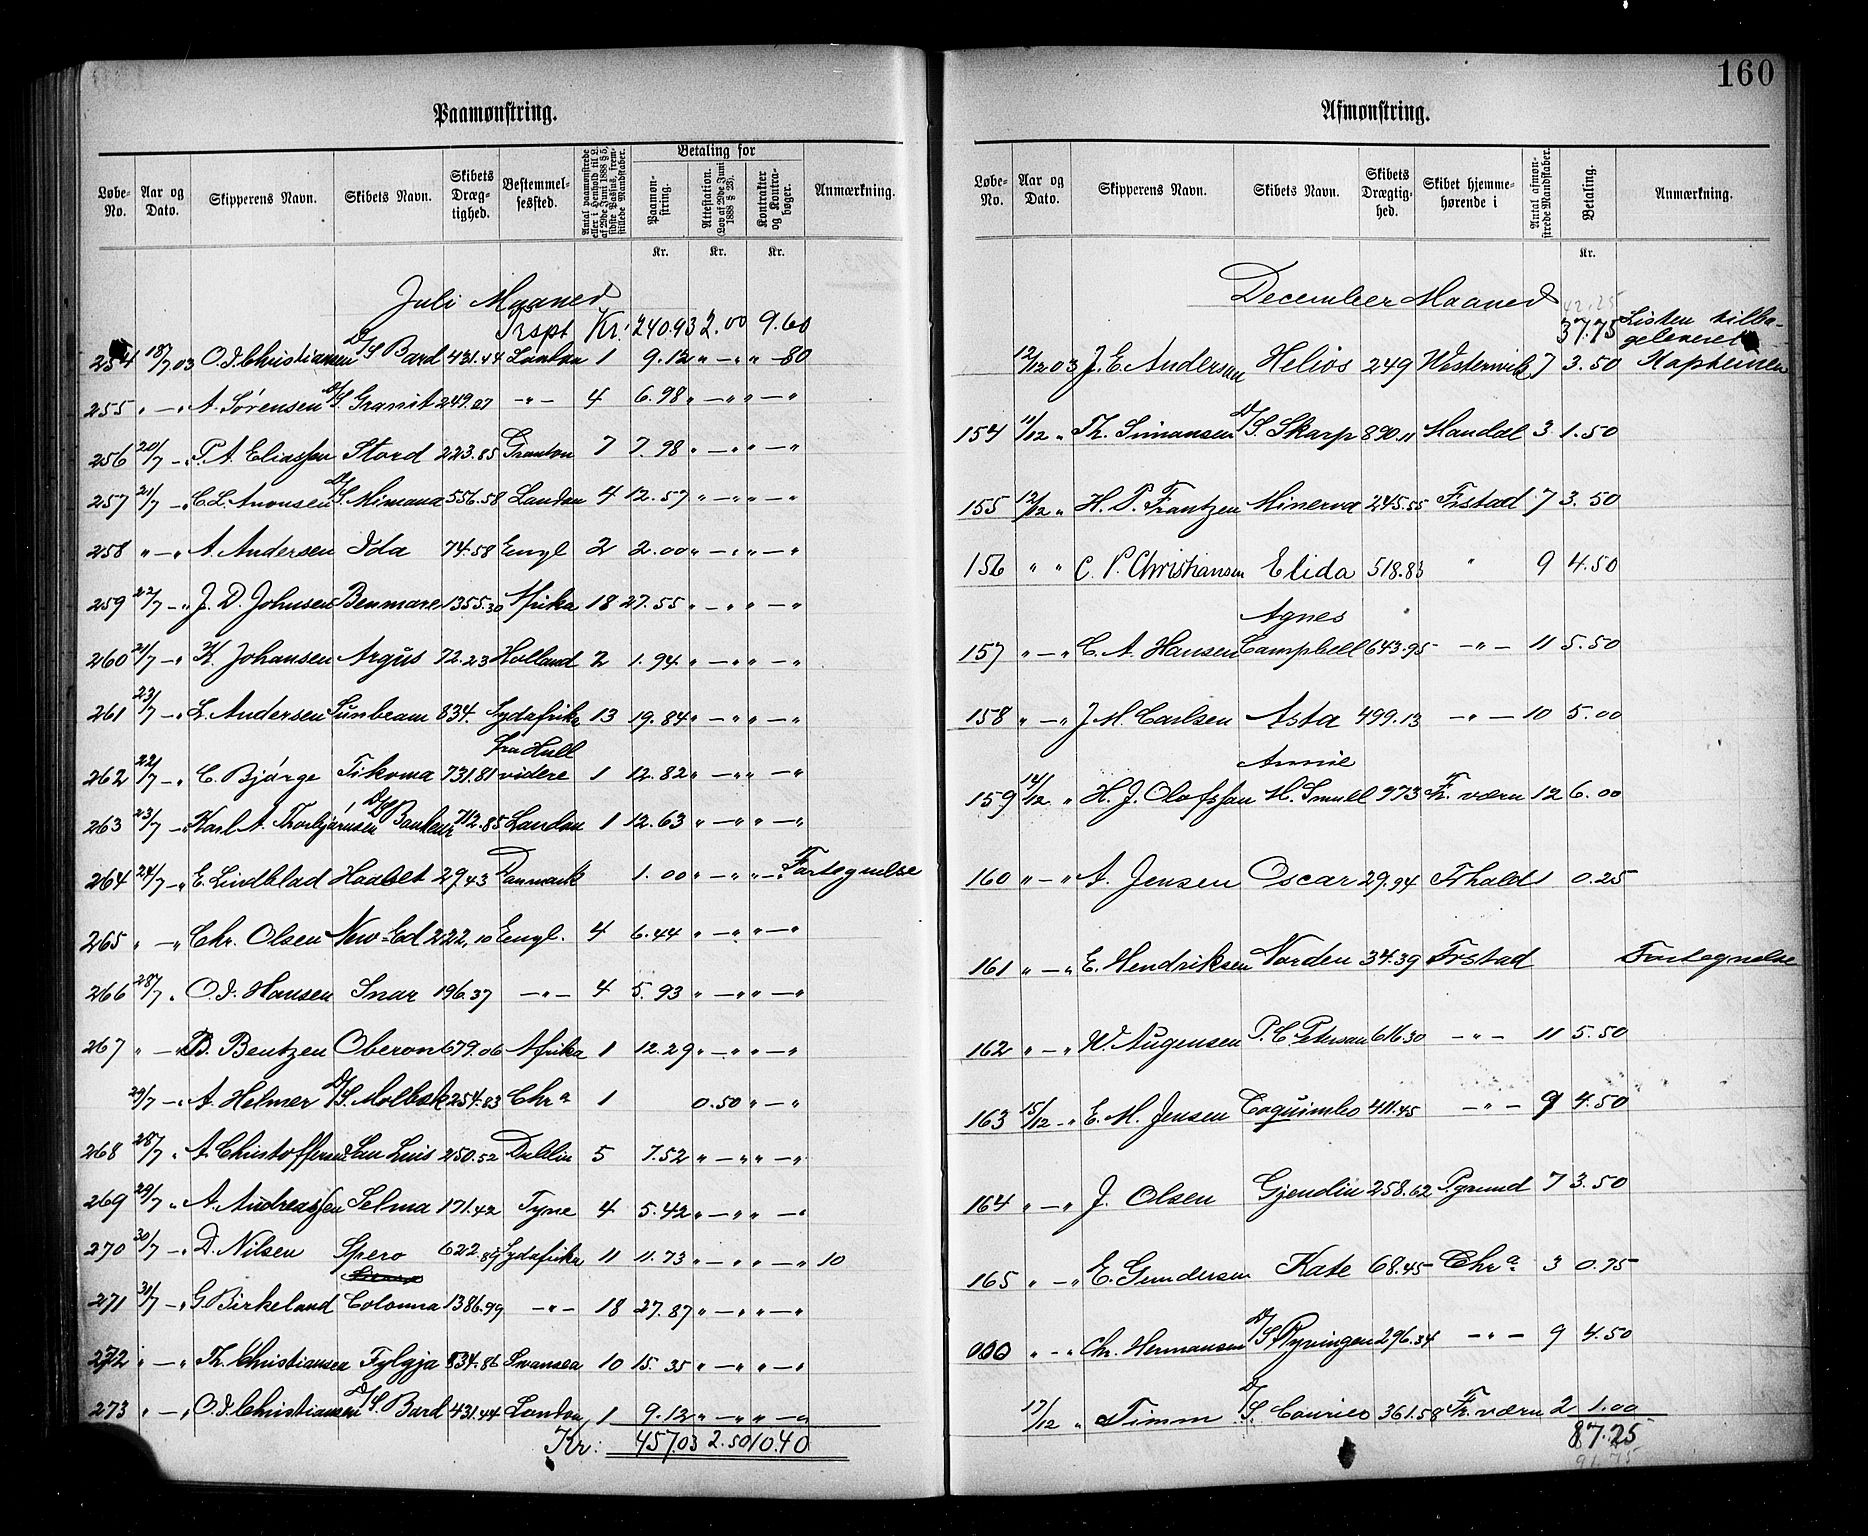 160
Paamønstring.
Løbe-No. Aar og Dato. Skipperens Navn. Skibets Navn. Skibets Dræg-tighed. Bestemmel-sessted. Antal paamønstrede eller i Henhold til L. af 29de Juni 1888 § 5, sidste Passus, frem-stillede Mandskaber. Betaling for Paamøn-string. Attestation. (Lov af 29de Juni 1888 § 23). Kontrakter og Kontra-bøger. Anmærkning.
Kr. Kr. Kr.
Juli Maaned
Trspt Kr: 240.93 2.00 9.60
254 18/7 03 O. J. Christiansen D/S Bard 431.44 London 1 9.12 " — " " — 80
255 " — " A. Sørensen D/S Granit 249.07 — " — 4 6.98 " — " " — "
256 20/7 — " P. A. Eliassen Stord 223.85 Granton 7 7.98 " — " " — "
257 21/7 — " C. L. Aronsen D/S Mimona 556.58 London 4 12.57 " — " " — "
258 " — " A. Andersen Ida 74.58 Engl 2 2.00 " — " " — "
259 22/7 — " J. D. Johnsen Benmore 1355.30 Afrika 18 27.55 " — " " — "
260 21/7 — " K. Johansen Argus 72.23 Holland 2 1.94 " — " " — "
261 23/7 — " L. Andersen Sunbeam 834. Sydafrika 13 19.84 " — " " — "
fra Hull
262 22/7 — " C. Bjørge Tikoma 731.81 videre 1 12.82 " — " " — "
263 23/7 — " Karl A. Thorbjørnsen D/S 712.85 London 1 12.63 " — " " — "
264 24/7 — " E. Lindblad Haabet 29.43 Danmark 1.00 " — " " — " Fortegnelse
265 " — " Chr. Olsen New-Ed 222,10 Engl. 4 6.44 " — " " — "
266 28/7 " O. J. Hansen Snar 196.37 — " — 4 5.93 " — " " — "
267 " — " B. Bentzen Oberon 679.06 Afrika 1 12.29 " — " " — "
29/7 — " A. Helmer D/S Molbæk 254.83 Chra 1 0.50 " — "
268 28/7 " A. Christoffersen San Luis 250.52 Dublin 5 7.52 " — " " — "
269 29/7 " A. Andreassen Selma 171.42 Tyne 4 5.42 " — " " — "
270 30/7 — " D. Nilsen Spero 622.89 Sydafrika 11 11.73 " — " " — " 10
271 31/7 — " G. Birkeland Colonna 1386.99 — " — 18 27.87 " — " " — "
272 " — " Th. Christiansen Fylgja 834.86 Swansea 10 15.35 " — " " — "
273 " — " O. J. Christiansen D/S. Bard 431.44 London 1 9.12 " — " " — "
Kr: 457.03 2.50 10.40
Afmønstring.
Løbe-No. Aar og Dato. Skipperens Navn. Skibets Navn. Skibets Drægtig-hed. Skibet hjemme-hørende i Antal afmøn-strede Mandskaber. Betaling. Anmærkning.
Kr.
December Maaned
42.25
37.75 Listen tilba-
geleveret
12/12 03 J. E. Anderson Helios 249 Westervik 7 3.50 Kapteinen
154 11/12 " Th. Simonsen D/S Skarp 890.11 Mandal 3 1.50
155 12/12 " H. P. Frantzen Minerva 245.55 Frstad 7 3.50
156 " " C. P. Christiansen Elida 518.83 " 9 4.50
Agnes
157 " — " C. A. Hansen Campbell 643.95 — " — 11 5.50
158 " — " J. M. Carlsen Asta 499.13 — " — 10 5.00
Annie
159 14/12 " H. J. Olofsson M. Smull 973 Fr. værn 12 6.00
160 " — " A. Jensen Oscar 29.94 Frhald 1 0.25
161 " — " E. Hendriksen Norden 34.39 Frstad Fortegnelse
162 " — " W. Augensen P. C. Petersen 616.30 — " — 11 5.50
163 15/12 — " E. M. Jensen Coquimbo 411.45 — " — 9 4.50
164 " — " J. Olsen Gjendin 258.62 Pgrund 7 3.50
165 " — " E. Gundersen Kate 68.45 Chra 3 0.75
000 " — " Chr. Hermansen D/S Ryvingen 296.34 — " — 9 4.50
17/12 " Timm D/S. Courier 361.58 Fr. værn 2 1.00
87.25
91.75